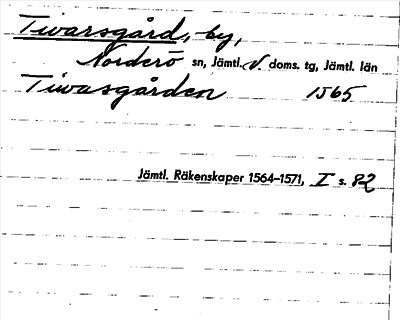 Tivarsgård, by,
Norderö sn, Jämtl. V. doms. tg, Jämtl. län
Tiwasgården 1565
Jämtl. Räkenskaper 1564–1571, I s. 82